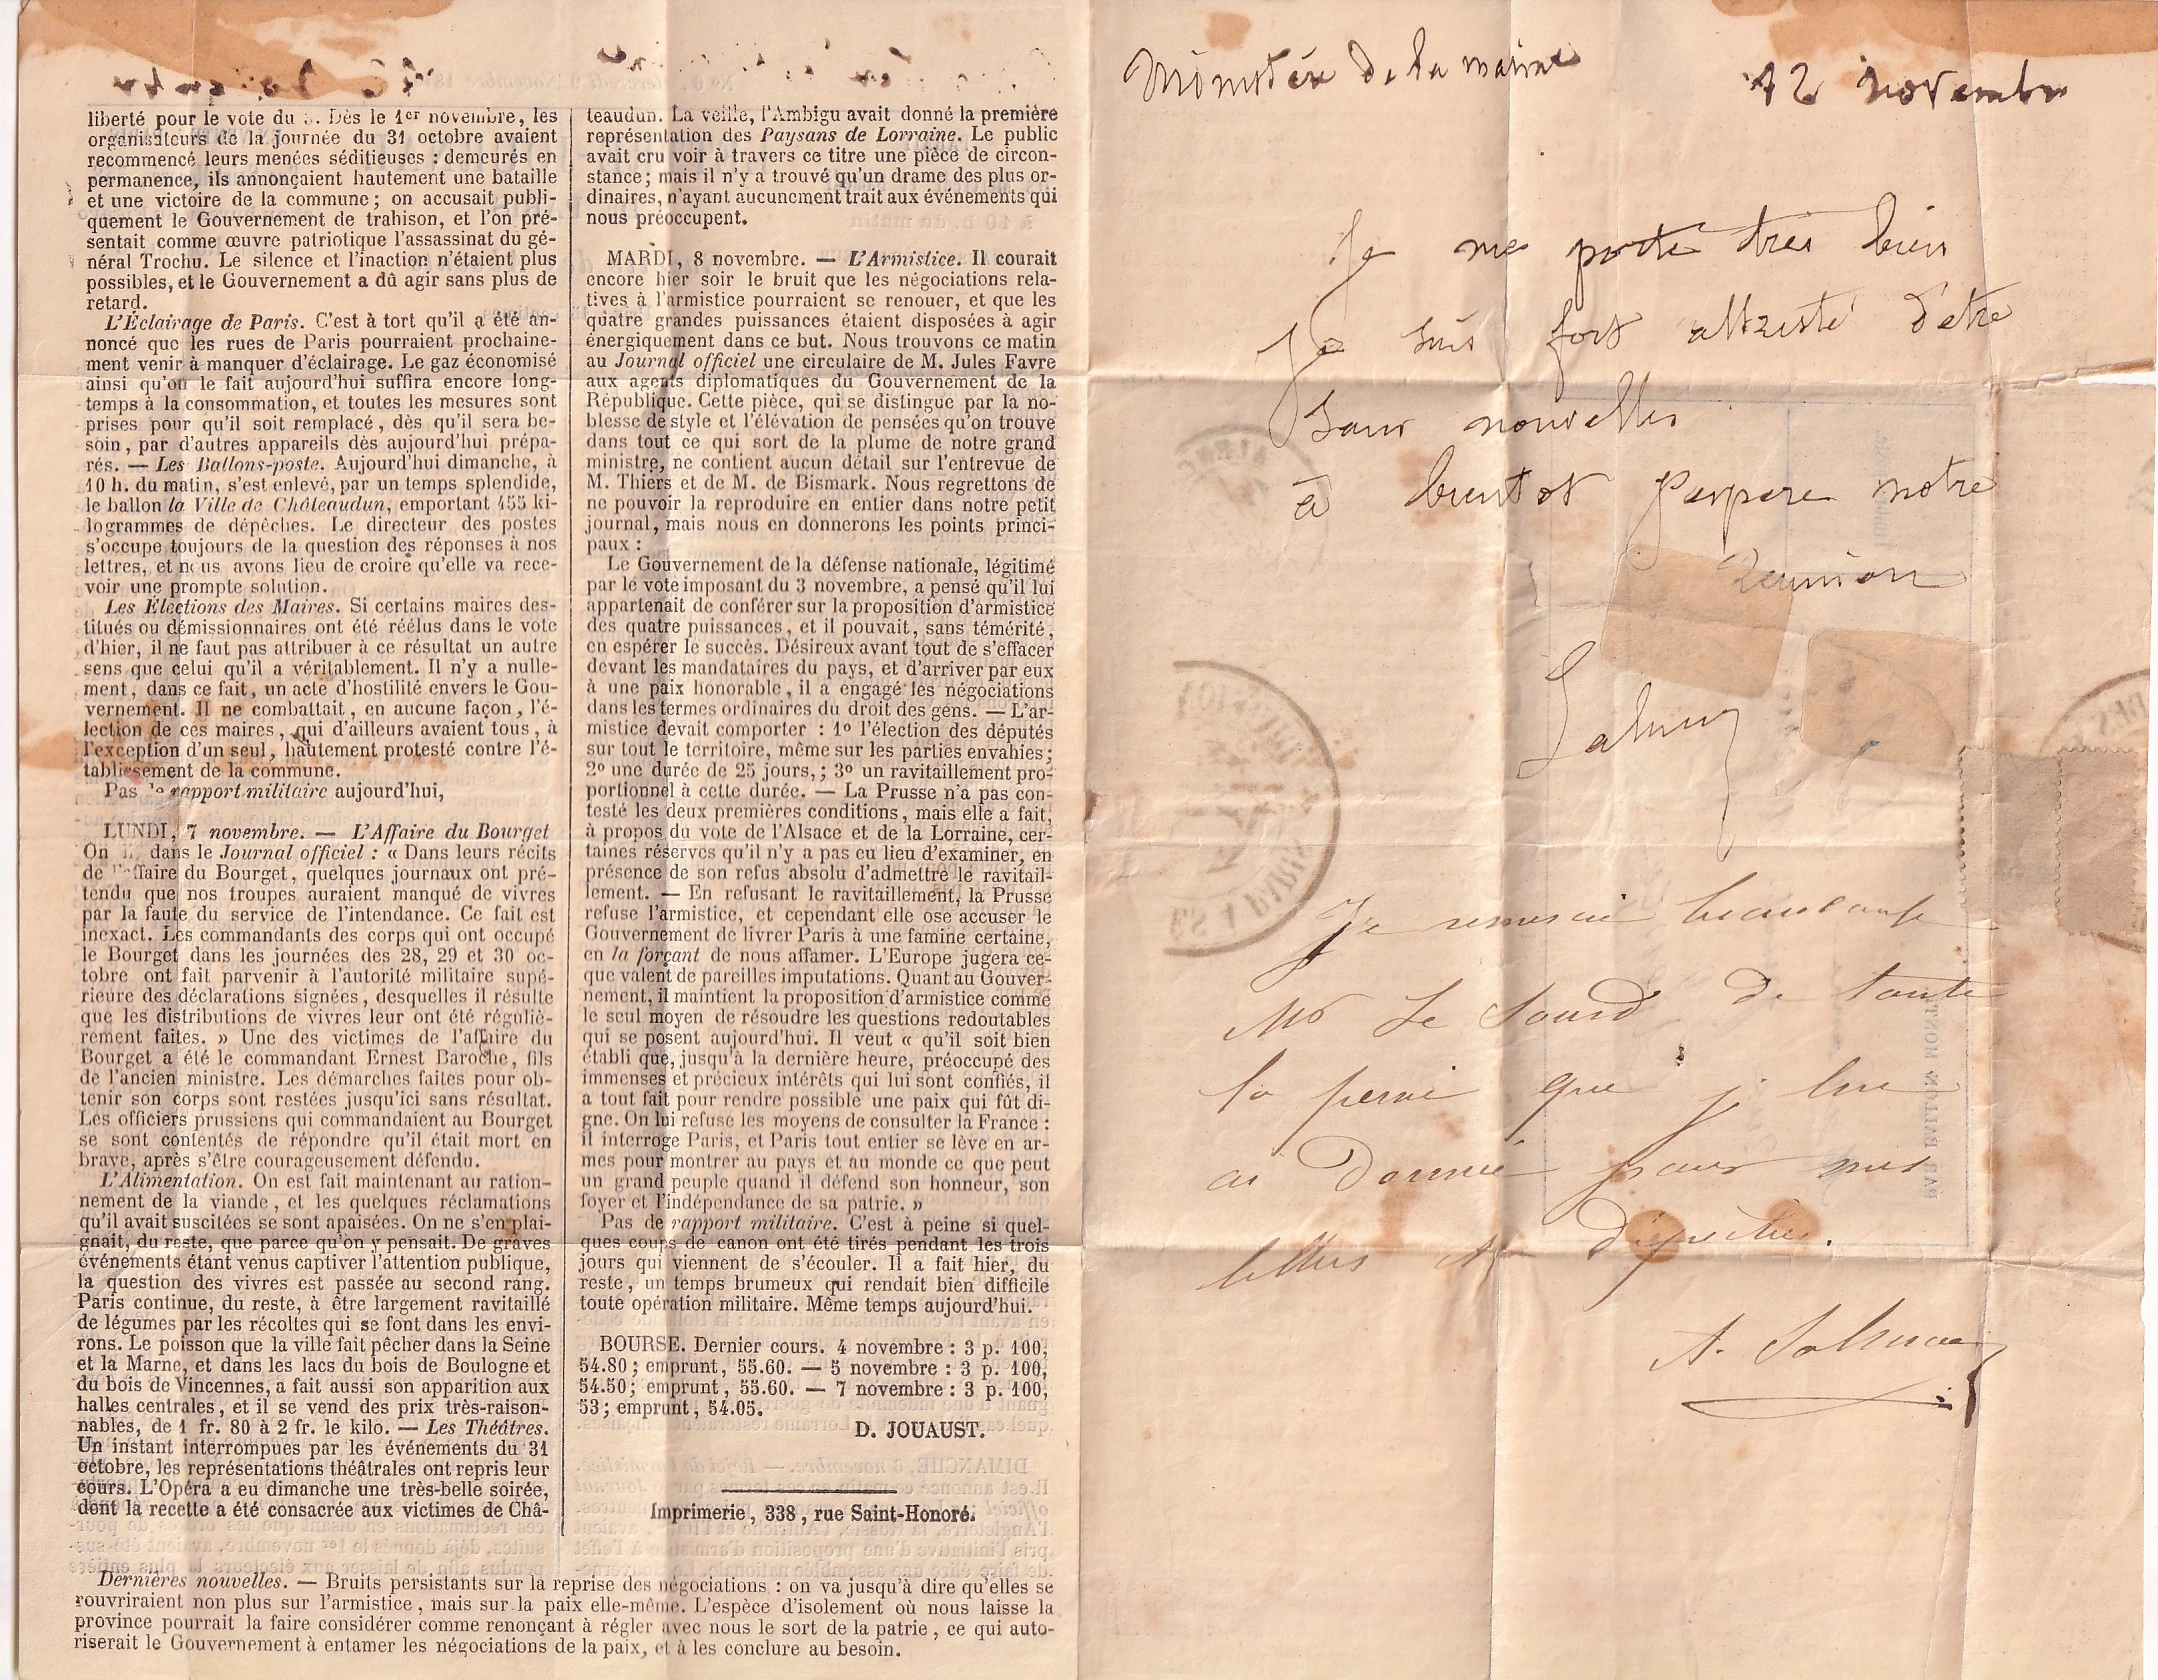 liberté pour le vote du 3. Dès le 1er novembre, les
organisateurs de la journée du 31 octobre avaient
recommencé leurs menées séditieuses : demeurés en
permanence, ils annonçaient hautement une bataille
et une victoire de la commune ; on accusait publi-
quement le Gouvernement de trahison, et l'on pré-
sentait comme œuvre patriotique l'assassinat du gé-
néral Trochu. Le silence et l'inaction n'étaient plus
possibles, et le Gouvernement a dû agir sans plus de
retard.
L'Éclairage de Paris. C'est à tort qu'il a été an-
noncé que les rues de Paris pourraient prochaine-
ment venir à manquer d'éclairage. Le gaz économisé
ainsi qu'on le fait aujourd'hui suffira encore long-
temps à la consommation, et toutes les mesures sont
prises pour qu'il soit remplacé, dès qu'il sera be-
soin, par d'autres appareils dès aujourd'hui prépa-
rés. — Les Ballons-poste. Aujourd'hui dimanche, à
10 h. du matin, s'est enlevé, par un temps splendide,
le ballon la Ville de Châteaudun, emportant 455 ki-
logrammes de dépêches. Le directeur des postes
s'occupe toujours de la question des réponses à nos
lettres, et nous avons lieu de croire qu'elle va rece-
voir une prompte solution.
Les Élections des Maires. Si certains maires des-
titués ou démissionnaires ont été réélus dans le vote
d'hier, il ne faut pas attribuer à ce résultat un autre
sens que celui qu'il a véritablement. Il n'y a nulle-
ment, dans ce fait, un acte d'hostilité envers le Gou-
vernement. Il ne combattait, en aucune façon, l'é-
lection de ces maires, qui d'ailleurs avaient tous, à
l'exception d'un seul, hautement protesté contre l'é-
tablissement de la commune.
Pas de rapport militaire aujourd'hui,
LUNDI, 7 novembre. — L'Affaire du Bourget
On lit dans le Journal officiel : « Dans leurs récits
de l'affaire du Bourget, quelques journaux ont pré-
tendu que nos troupes auraient manqué de vivres
par la faute du service de l'intendance. Ce fait est
inexact. Les commandants des corps qui ont occupé
le Bourget dans les journées des 28, 29 et 30 oc-
tobre ont fait parvenir à l'autorité militaire supé-
rieure des déclarations signées, desquelles il résulte
que les distributions de vivres leur ont été réguliè-
rement faites. » Une des victimes de l'affaire du
Bourget a été le commandant Ernest Baroche, fils
de l'ancien ministre. Les démarches faites pour ob-
tenir son corps sont restées jusqu'ici sans résultat.
Les officiers prussiens qui commandaient au Bourget
se sont contentés de répondre qu'il était mort en
brave, après s'être courageusement défendu.
L'Alimentation. On est fait maintenant au ration-
nement de la viande, et les quelques réclamations
qu'il avait suscitées se sont apaisées. On ne s'en plai-
gnait, du reste, que parce qu'on y pensait. De graves
événements étant venus captiver l'attention publique,
la question des vivres est passée au second rang.
Paris continue, du reste, à être largement ravitaillé
de légumes par les récoltes qui se font dans les envi-
rons. Le poisson que la ville fait pêcher dans la Seine
et la Marne, et dans les lacs du bois de Boulogne et
du bois de Vincennes, a fait aussi son apparition aux
halles centrales, et il se vend des prix très-raison-
nables, de 1 fr. 80 à 2 fr. le kilo. — Les Théâtres.
Un instant interrompues par les événements du 31
octobre, les représentations théâtrales ont repris leur
cours. L'Opéra a eu dimanche une très-belle soirée,
dont la recette a été consacrée aux victimes de Châ-
teaudun. La veille, l'Ambigu avait donné la première
représentation des Paysans de Lorraine. Le public
avait cru voir à travers ce titre une pièce de circon-
stance ; mais il n'y a trouvé qu'un drame des plus or-
dinaires, n'ayant aucunement trait aux événements qui
nous préoccupent.
MARDI, 8 novembre. — L'Armistice. Il courait
encore hier soir le bruit que les négociations rela-
tives à l'armistice pourraient se renouer, et que les
quatre grandes puissances étaient disposées à agir
énergiquement dans ce but. Nous trouvons ce matin
au Journal officiel une circulaire de M. Jules Favre
aux agents diplomatiques du Gouvernement de la
République. Cette pièce, qui se distingue par la no-
blesse de style et l'élévation de pensées qu'on trouve
dans tout ce qui sort de la plume de notre grand
ministre, ne contient aucun détail sur l'entrevue de
M. Thiers et de M. de Bismark. Nous regrettons de
ne pouvoir la reproduire en entier dans notre petit
journal, mais nous en donnerons les points princi-
paux :
Le Gouvernement de la défense nationale, légitimé
par le vote imposant du 3 novembre, a pensé qu'il lui
appartenait de conférer sur la proposition d'armistice
des quatre puissances, et il pouvait, sans témérité,
en espérer le succès. Désireux avant tout de s'effacer
devant les mandataires du pays, et d'arriver par eux
à une paix honorable, il a engagé les négociations
dans les termes ordinaires du droit des gens. — L'ar-
mistice devait comporter : 1º l'élection des députés
sur tout le territoire, même sur les parties envahies ;
2º une durée de 25 jours, ; 3º un ravitaillement pro-
portionnel à cette durée. — La Prusse n'a pas con-
testé les deux premières conditions, mais elle a fait,
à propos du vote de l'Alsace et de la Lorraine, cer-
taines réserves qu'il n'y a pas eu lieu d'examiner, en
présence de son refus absolu d'admettre le ravitail-
lement. — En refusant le ravitaillement, la Prusse
refuse l'armistice, et cependant elle ose accuser le
Gouvernement de livrer Paris à une famine certaine,
en la forçant de nous affamer. L'Europe jugera ce
que valent de pareilles imputations. Quant au Gouver-
nement, il maintient la proposition d'armistice comme
le seul moyen de résoudre les questions redoutables
qui se posent aujourd'hui. Il veut « qu'il soit bien
établi que, jusqu'à la dernière heure, préoccupé des
immenses et précieux intérêts qui lui sont confiés, il
a tout fait pour rendre possible une paix qui fût di-
gne. On lui refuse les moyens de consulter la France :
il interroge Paris, et Paris tout entier se lève en ar-
mes pour montrer au pays et au monde ce que peut
un grand peuple quand il défend son honneur, son
foyer et l'indépendance de sa patrie. »
Pas de rapport militaire. C'est à peine si quel-
ques coups de canon ont été tirés pendant les trois
jours qui viennent de s'écouler. Il a fait hier, du
reste, un temps brumeux qui rendait bien difficile
toute opération militaire. Même temps aujourd'hui.
BOURSE. Dernier cours. 4 novembre : 3 p. 100,
54.80 ; emprunt, 55.60. — 5 novembre : 3 p. 100,
54.50 ; emprunt, 55.60. — 7 novembre : 3 p. 100,
53 ; emprunt, 54.05.
D. JOUAUST.
Imprimerie, 338, rue Saint-Honoré.
Dernières nouvelles. — Bruits persistants sur la reprise des négociations : on va jusqu'à dire qu'elles se
rouvriraient non plus sur l'armistice, mais sur la paix elle-même. L'espèce d'isolement où nous laisse la
province pourrait la faire considérer comme renonçant à régler avec nous le sort de la patrie, ce qui auto-
riserait le Gouvernement à entamer les négociations de la paix, et à les conclure au besoin.
Ministère de la marine
12 novembre
Je me porte très bien
Je suis fort attristé d'être
sans nouvelles
à bientot j'espere notre
Reunion
Je remercie beaucoup
Mr Le Sourd de toute
la peine que j lui
ai donné pour mes
lettres et dépêches.